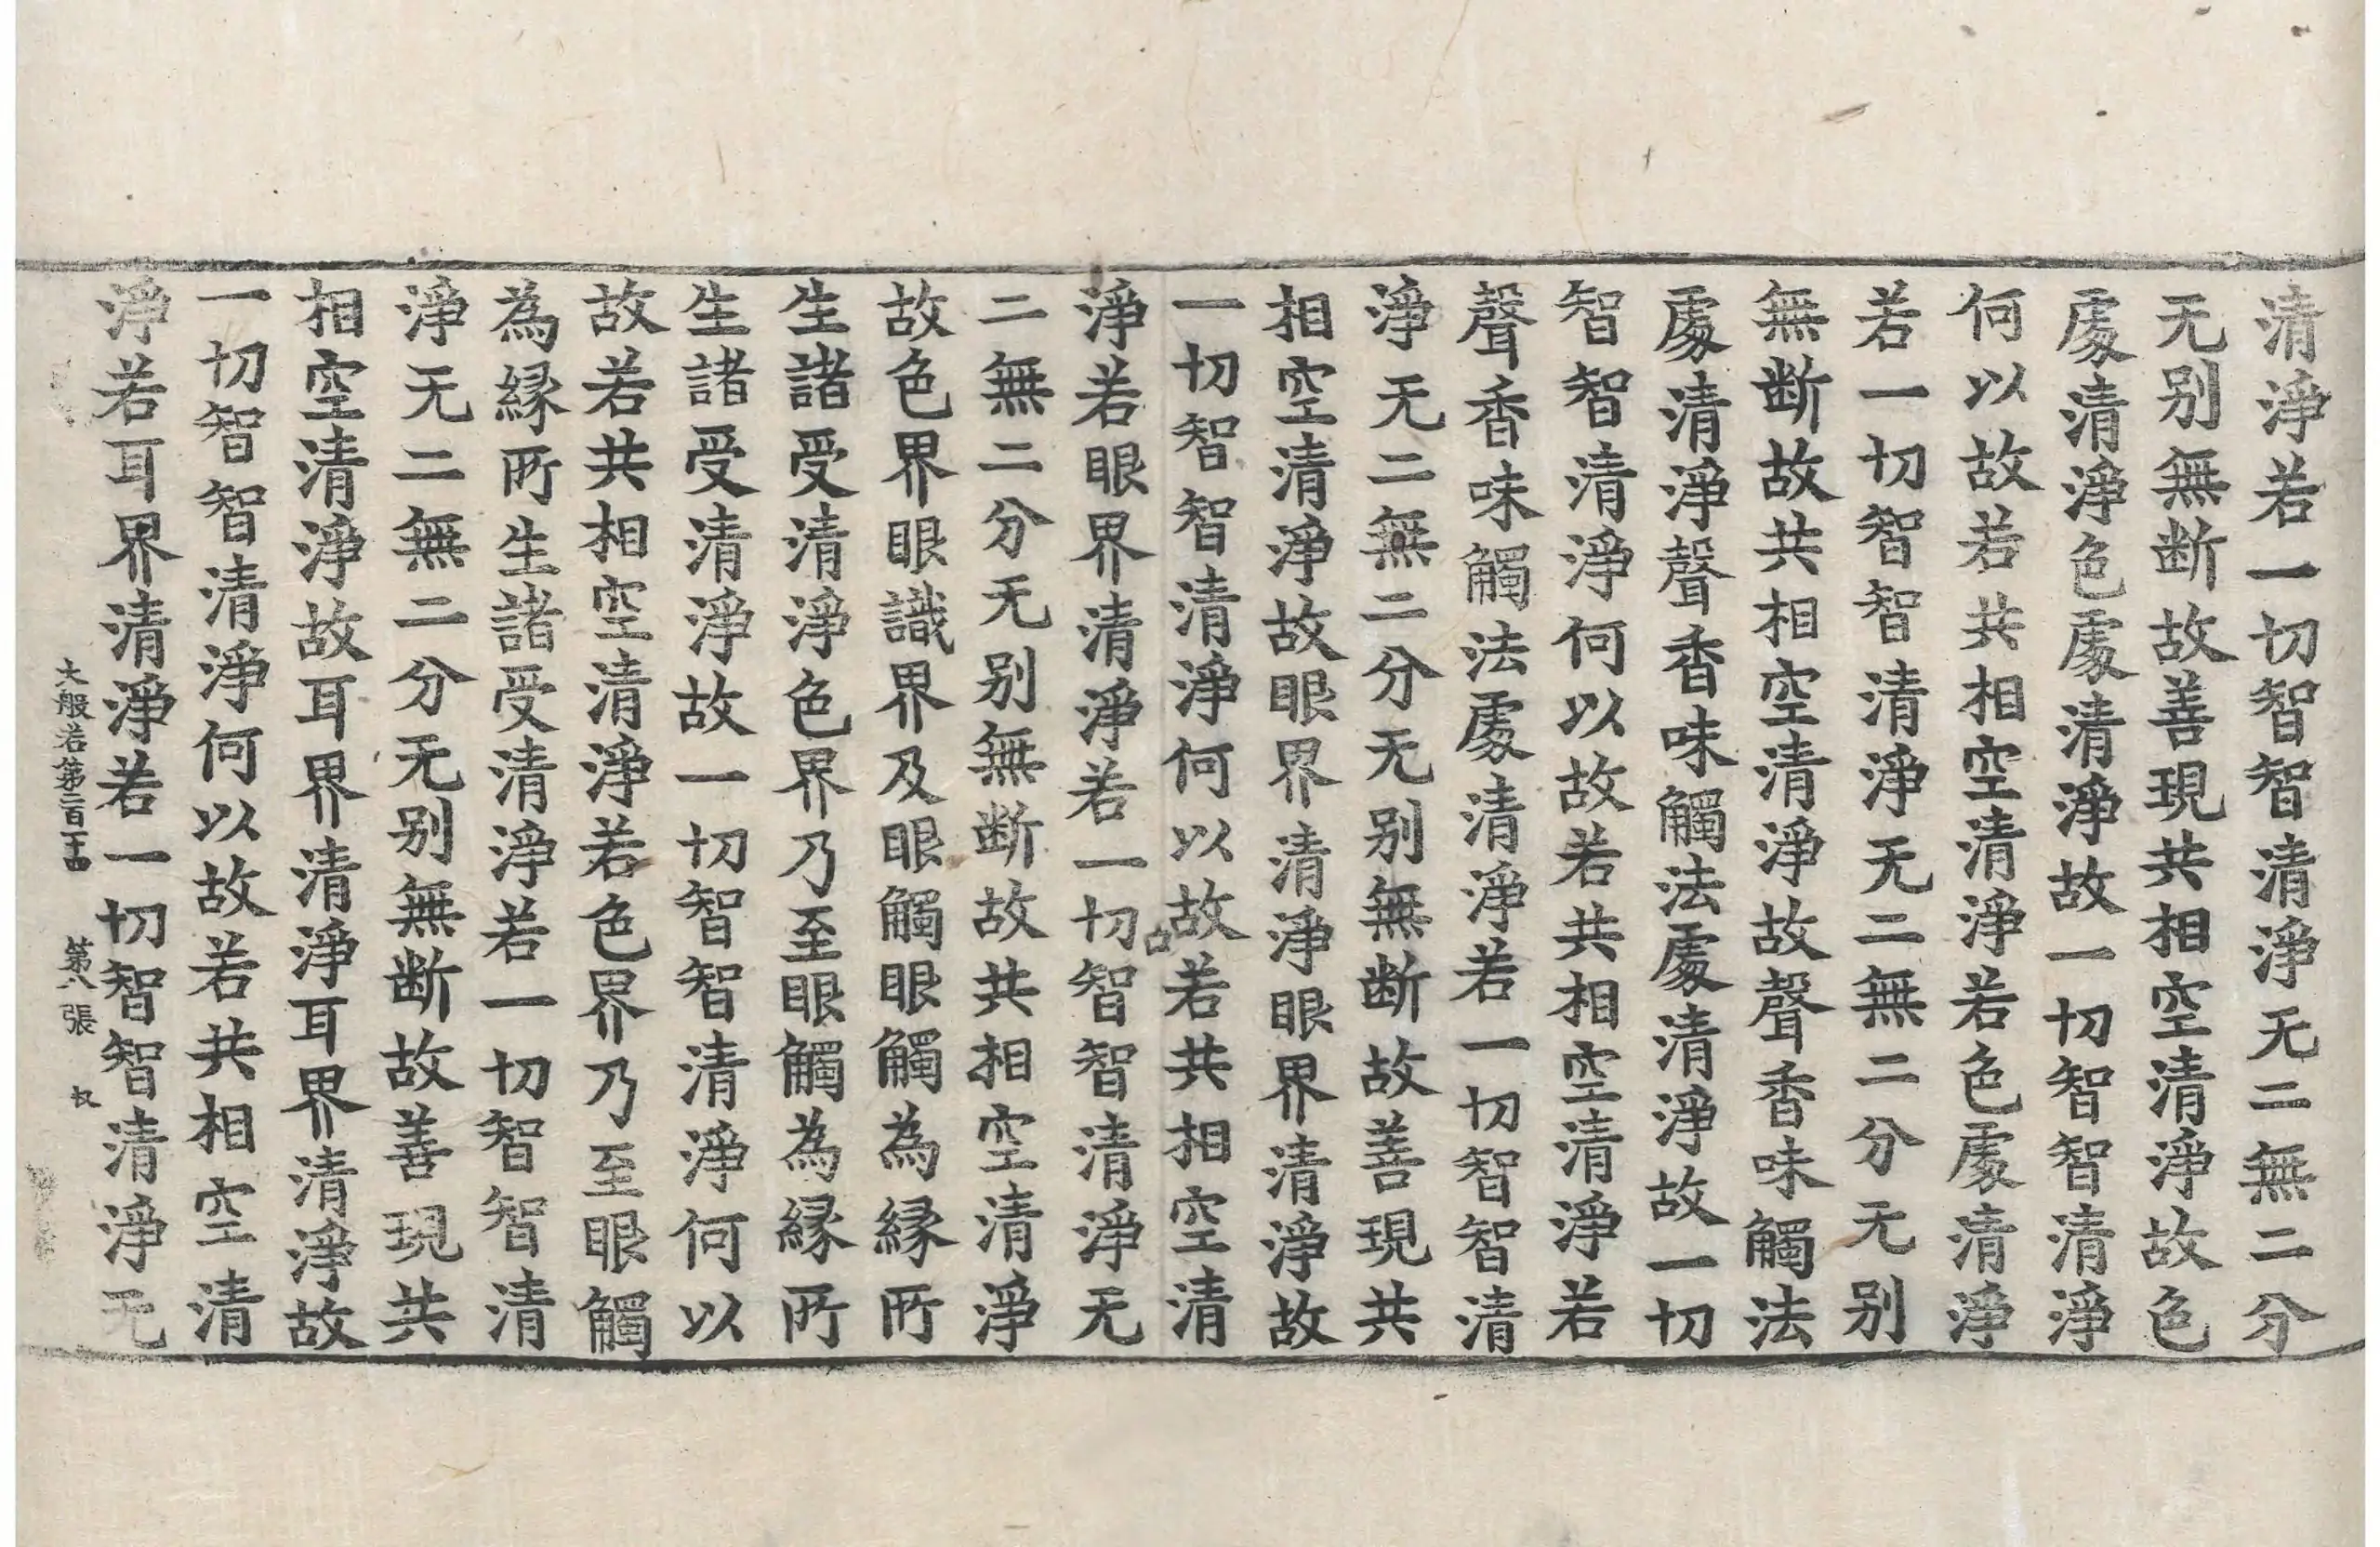 清淨若一切智智清淨无二無二分
无别無断故善現共相空清淨故色
處清淨色處清淨故一切智智清淨
何以故若共相空清淨若色處清淨
若一切智智清淨无二無二分无别
無断故共相空清淨故聲香味觸法
處清淨聲香味觸法處清淨故一切
智智清淨何以故若共相空清淨若
聲香味觸法處清淨若一切智智清
淨无二無二分无别無断故善現共
相空清淨故眼界清淨眼界清淨故
一切智智清淨何以故若共相空清
淨若眼界清淨若一切智智清淨无
二無二分无别無断故共相空清淨
故色界眼識界及眼觸眼觸為緣所
生諸受清淨色界乃至眼觸為緣所
生諸受清淨故一切智智清淨何以
故若共相空清淨若色界乃至眼觸
為緣所生諸受清淨若一切智智清
淨无二無二分无别無断故善現共
相空清淨故耳界清淨耳界清淨故
一切智智清淨何以故若共相空清
淨若耳界清淨若一切智智清淨无
大般若第二百 第八張